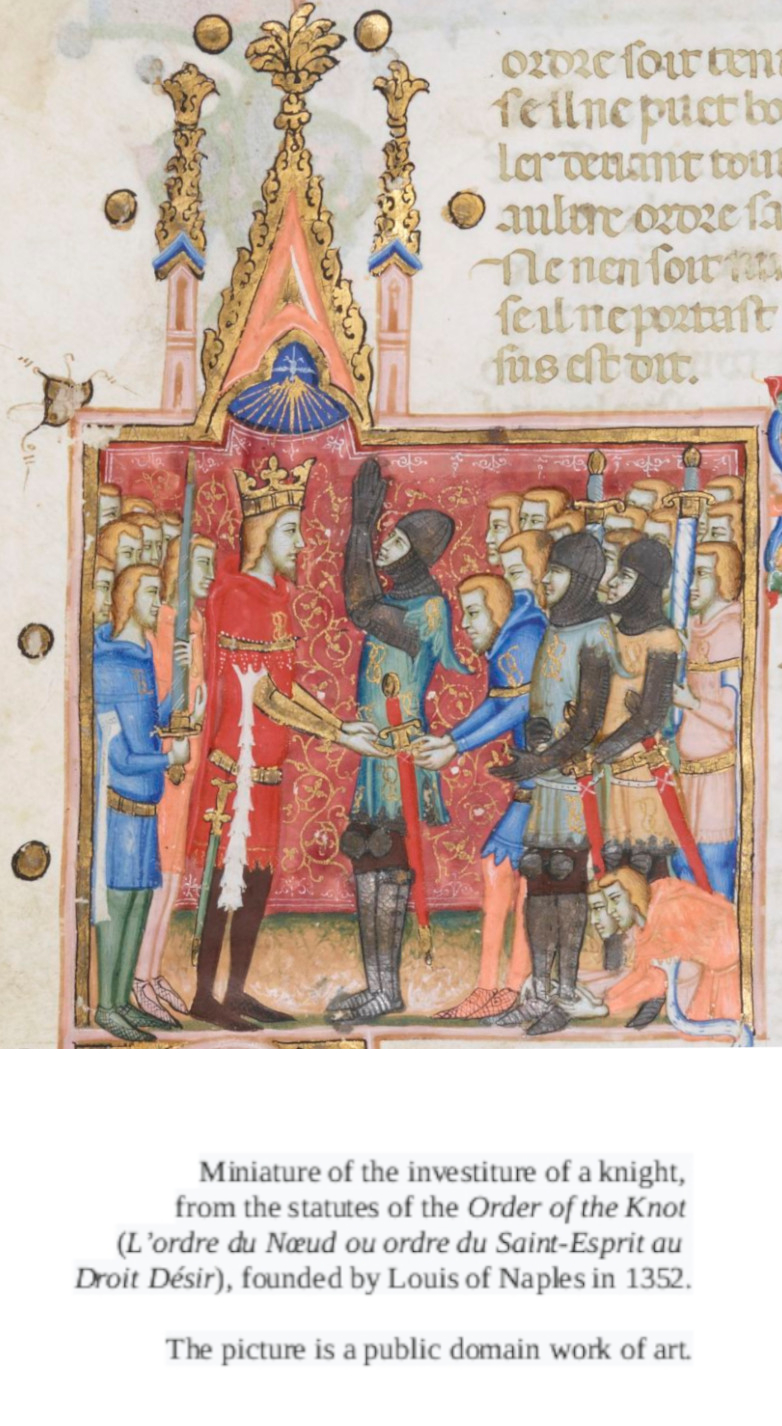 ordre soit ten
se il ne puet
ler devant tout
aultre ordre sa
Ne nen soit
se il ne portast
sus est dit.
Miniature of the investiture of a knight,
from the statutes of the Order of the Knot
(L’ordre du Nœud ou ordre du Saint-Esprit au
Droit Désir), founded by Louis of Naples in 1352.
The picture is a public domain work of art.